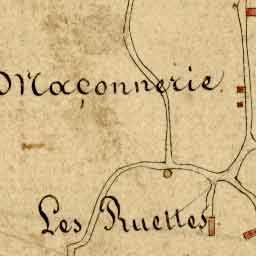 Maçonnerie.
Les Ruettes